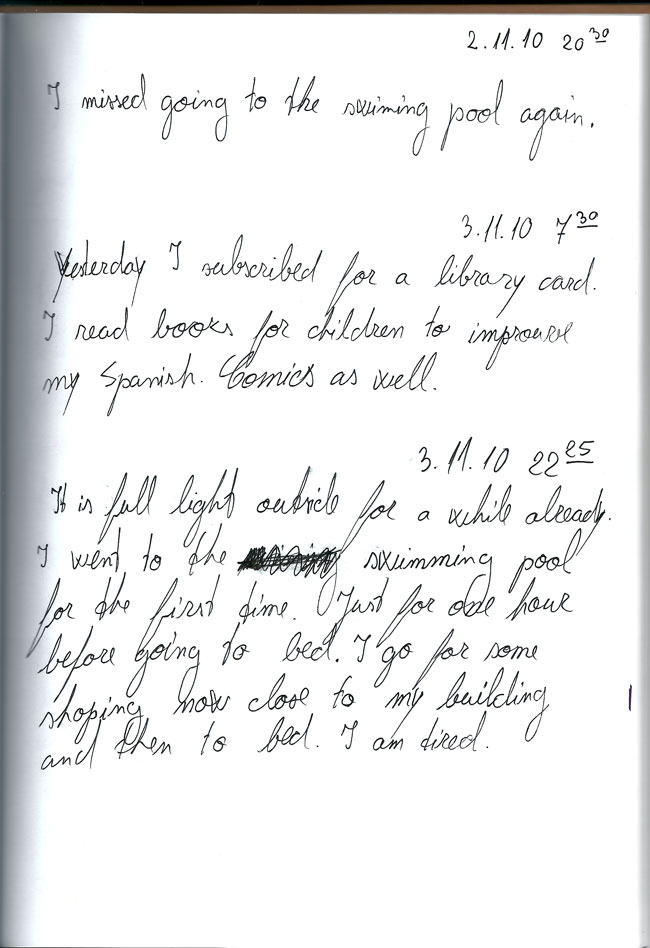 2.11.10 20 30
I missed going to the swiming pool again.
3.11.10 7 30
Yesterday I subscribed for a library card.
I read books for children to improuve
my Spanish. Comics as well.
3.11.10 22 25
It is full light outside for a while already.
I went to the swimming pool
for the first time. Just for one hour
before going to bed. I go for some
shoping now close to my building
and then to bed. I am tired.